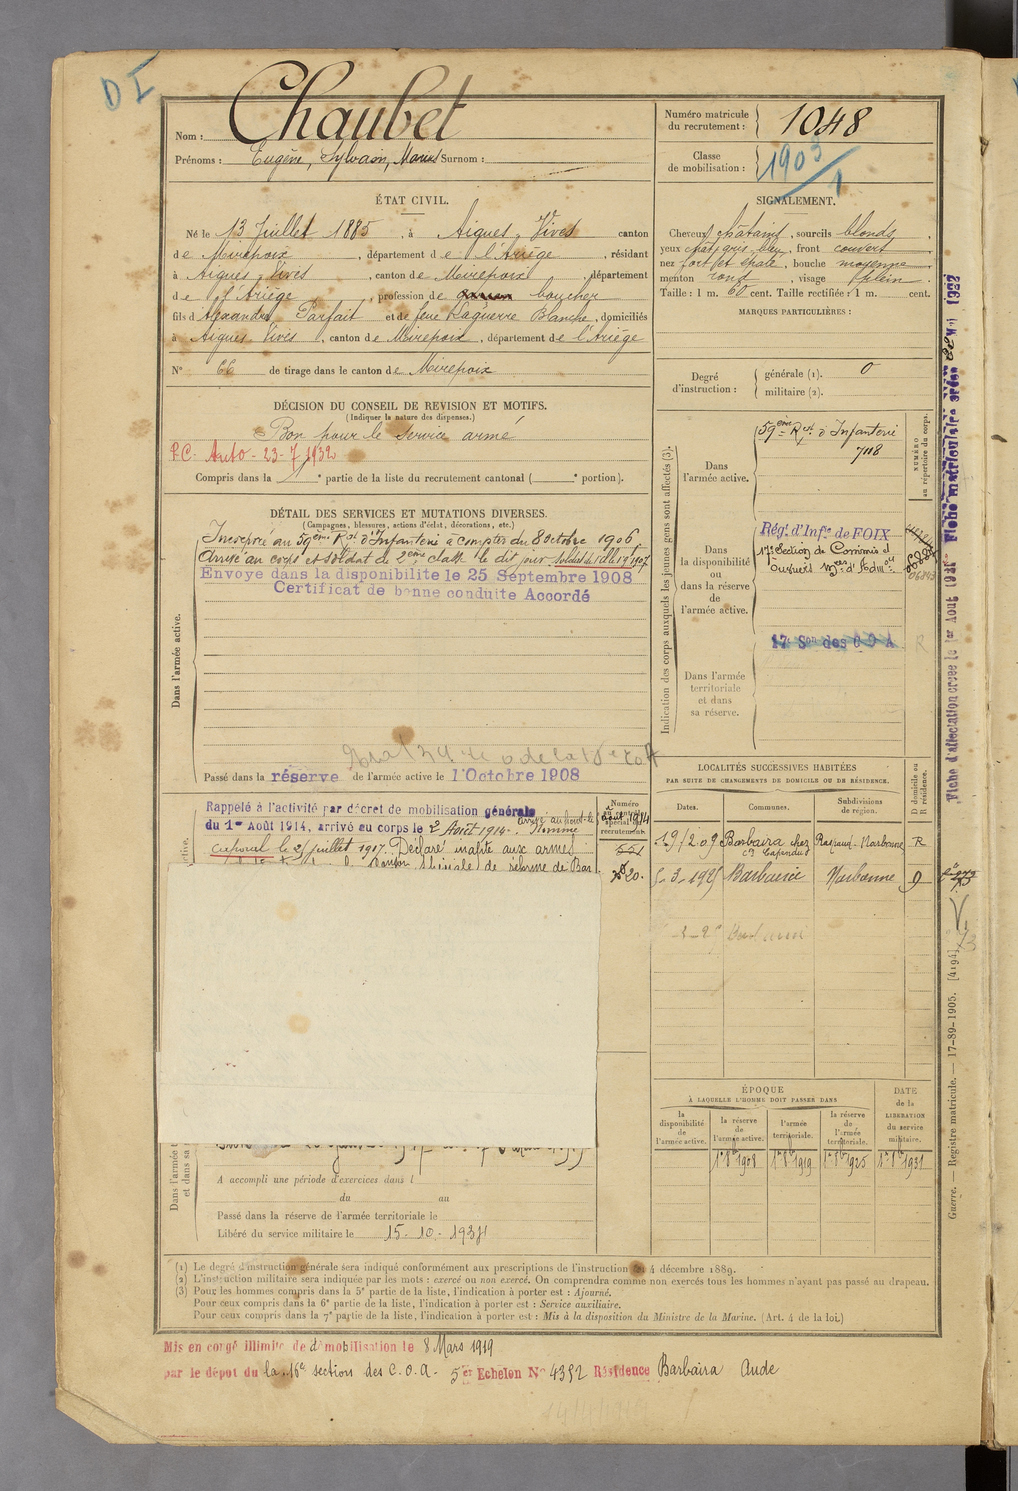 D I
Nom : Chaubet
Prénoms : Eugène, Sylvain, Marius Surnom :
Numéro matricule du recrutement : 1048
Classe de mobilisation : 1903/1
ÉTAT CIVIL.
Né le 13 Juillet 1885, à Aigues-Vives canton
de Mirepoix, département de l'Ariège, résidant
à Aigues-Vives, canton de Mirepoix, département
de l'Ariège, profession de boucher
fils d'Alexandre Parfait et de feue Laguerre Blanche, domiciliés
à Aigues Vives, canton de Mirepoix, département de l'Ariège
N° 66 de tirage dans le canton de Mirepoix
SIGNALEMENT.
Cheveux châtains, sourcils blonds,
yeux chât. gris bleu, front couvert
nez fort et épaté, bouche moyenne
menton rond, visage plein.
Taille : 1 m. 60 cent. Taille rectifiée : 1 m. cent.
MARQUES PARTICULIÈRES :
Degré d'instruction :
générale (1). 0
militaire (2).
DÉCISION DU CONSEIL DE REVISION ET MOTIFS.
(Indiquer la nature des dispenses.)
Bon pour le service armé
P.C. Auto - 23-7 1932
Compris dans la e partie de la liste du recrutement cantonal ( e portion).
DÉTAIL DES SERVICES ET MUTATIONS DIVERSES.
(Campagnes, blessures, actions d'éclat, décorations, etc.)
Dans l'armée active.
Incorporé au 59ème Rgt d'Infanterie à compter du 8 octobre 1906.
Arrivé au corps et soldat de 2ème classe le dit jour.
Envoyé dans la disponibilité le 25 Septembre 1908
Certificat de bonne conduite Accordé
Passé dans la réserve de l'armée active le 1 Octobre 1908
Rappelé à l'activité par décret de mobilisation générale
du 1er Août 1914, arrivé au corps le 2 Août 1914. Nommé
caporal le 21 juillet 1917. Déclaré inapte aux armes
Numéro au contrôle spécial du recrutement
août 1914
20.
Indication des corps auxquels les jeunes gens sont affectés (3).
NUMÉRO au répertoire du corps.
Dans l'armée active.
59ème Rgt d'Infanterie
7118
Dans la disponibilité ou dans la réserve de l'armée active.
Régt. d'Infie de FOIX
17e Section de Commis et
Ouvriers mres d'Admon
17e Son des C O A
R
Dans l'armée territoriale et dans sa réserve.
LOCALITÉS SUCCESSIVES HABITÉES
PAR SUITE DE CHANGEMENTS DE DOMICILE OU DE RÉSIDENCE.
Dates. Communes. Subdivisions de région. D domicile ou R résidence.
19/2 09 Barbaira chez Narbonne R
con Capendu
5-3-1925 Barbaira Narbonne D
ÉPOQUE
À LAQUELLE L'HOMME DOIT PASSER DANS
la disponibilité de l'armée active.
la réserve de l'armée active.
l'armée territoriale.
la réserve de l'armée territoriale.
DATE de la LIBÉRATION du service militaire.
1er 8bre 1908 1er 8bre 1919 1er 8bre 1925 1er 8bre 1931
Dans l'armée
et dans sa
A accompli une période d'exercices dans l
du au
Passé dans la réserve de l'armée territoriale le
Libéré du service militaire le 15-10-1934
(1) Le degré d'instruction générale sera indiqué conformément aux prescriptions de l'instruction du 4 décembre 1889.
(2) L'instruction militaire sera indiquée par les mots : exercé ou non exercé. On comprendra comme non exercés tous les hommes n'ayant pas passé au drapeau.
(3) Pour les hommes compris dans la 5e partie de la liste, l'indication à porter est : Ajourné.
Pour ceux compris dans la 6e partie de la liste, l'indication à porter est : Service auxiliaire.
Pour ceux compris dans la 7e partie de la liste, l'indication à porter est : Mis à la disposition du Ministre de la Marine. (Art. 4 de la loi.)
Mis en congé illimité de démobilisation le 8 Mars 1919
par le dépôt du la 16e section des C.O.A. 5er Echelon N° 4392 Résidence Barbaira Aude
Guerre. — Registre matricule. — 17-89-1905. [4194]
Fiche d'affectation créée le 1er Août 19 Fiche matriculaire créée 1922